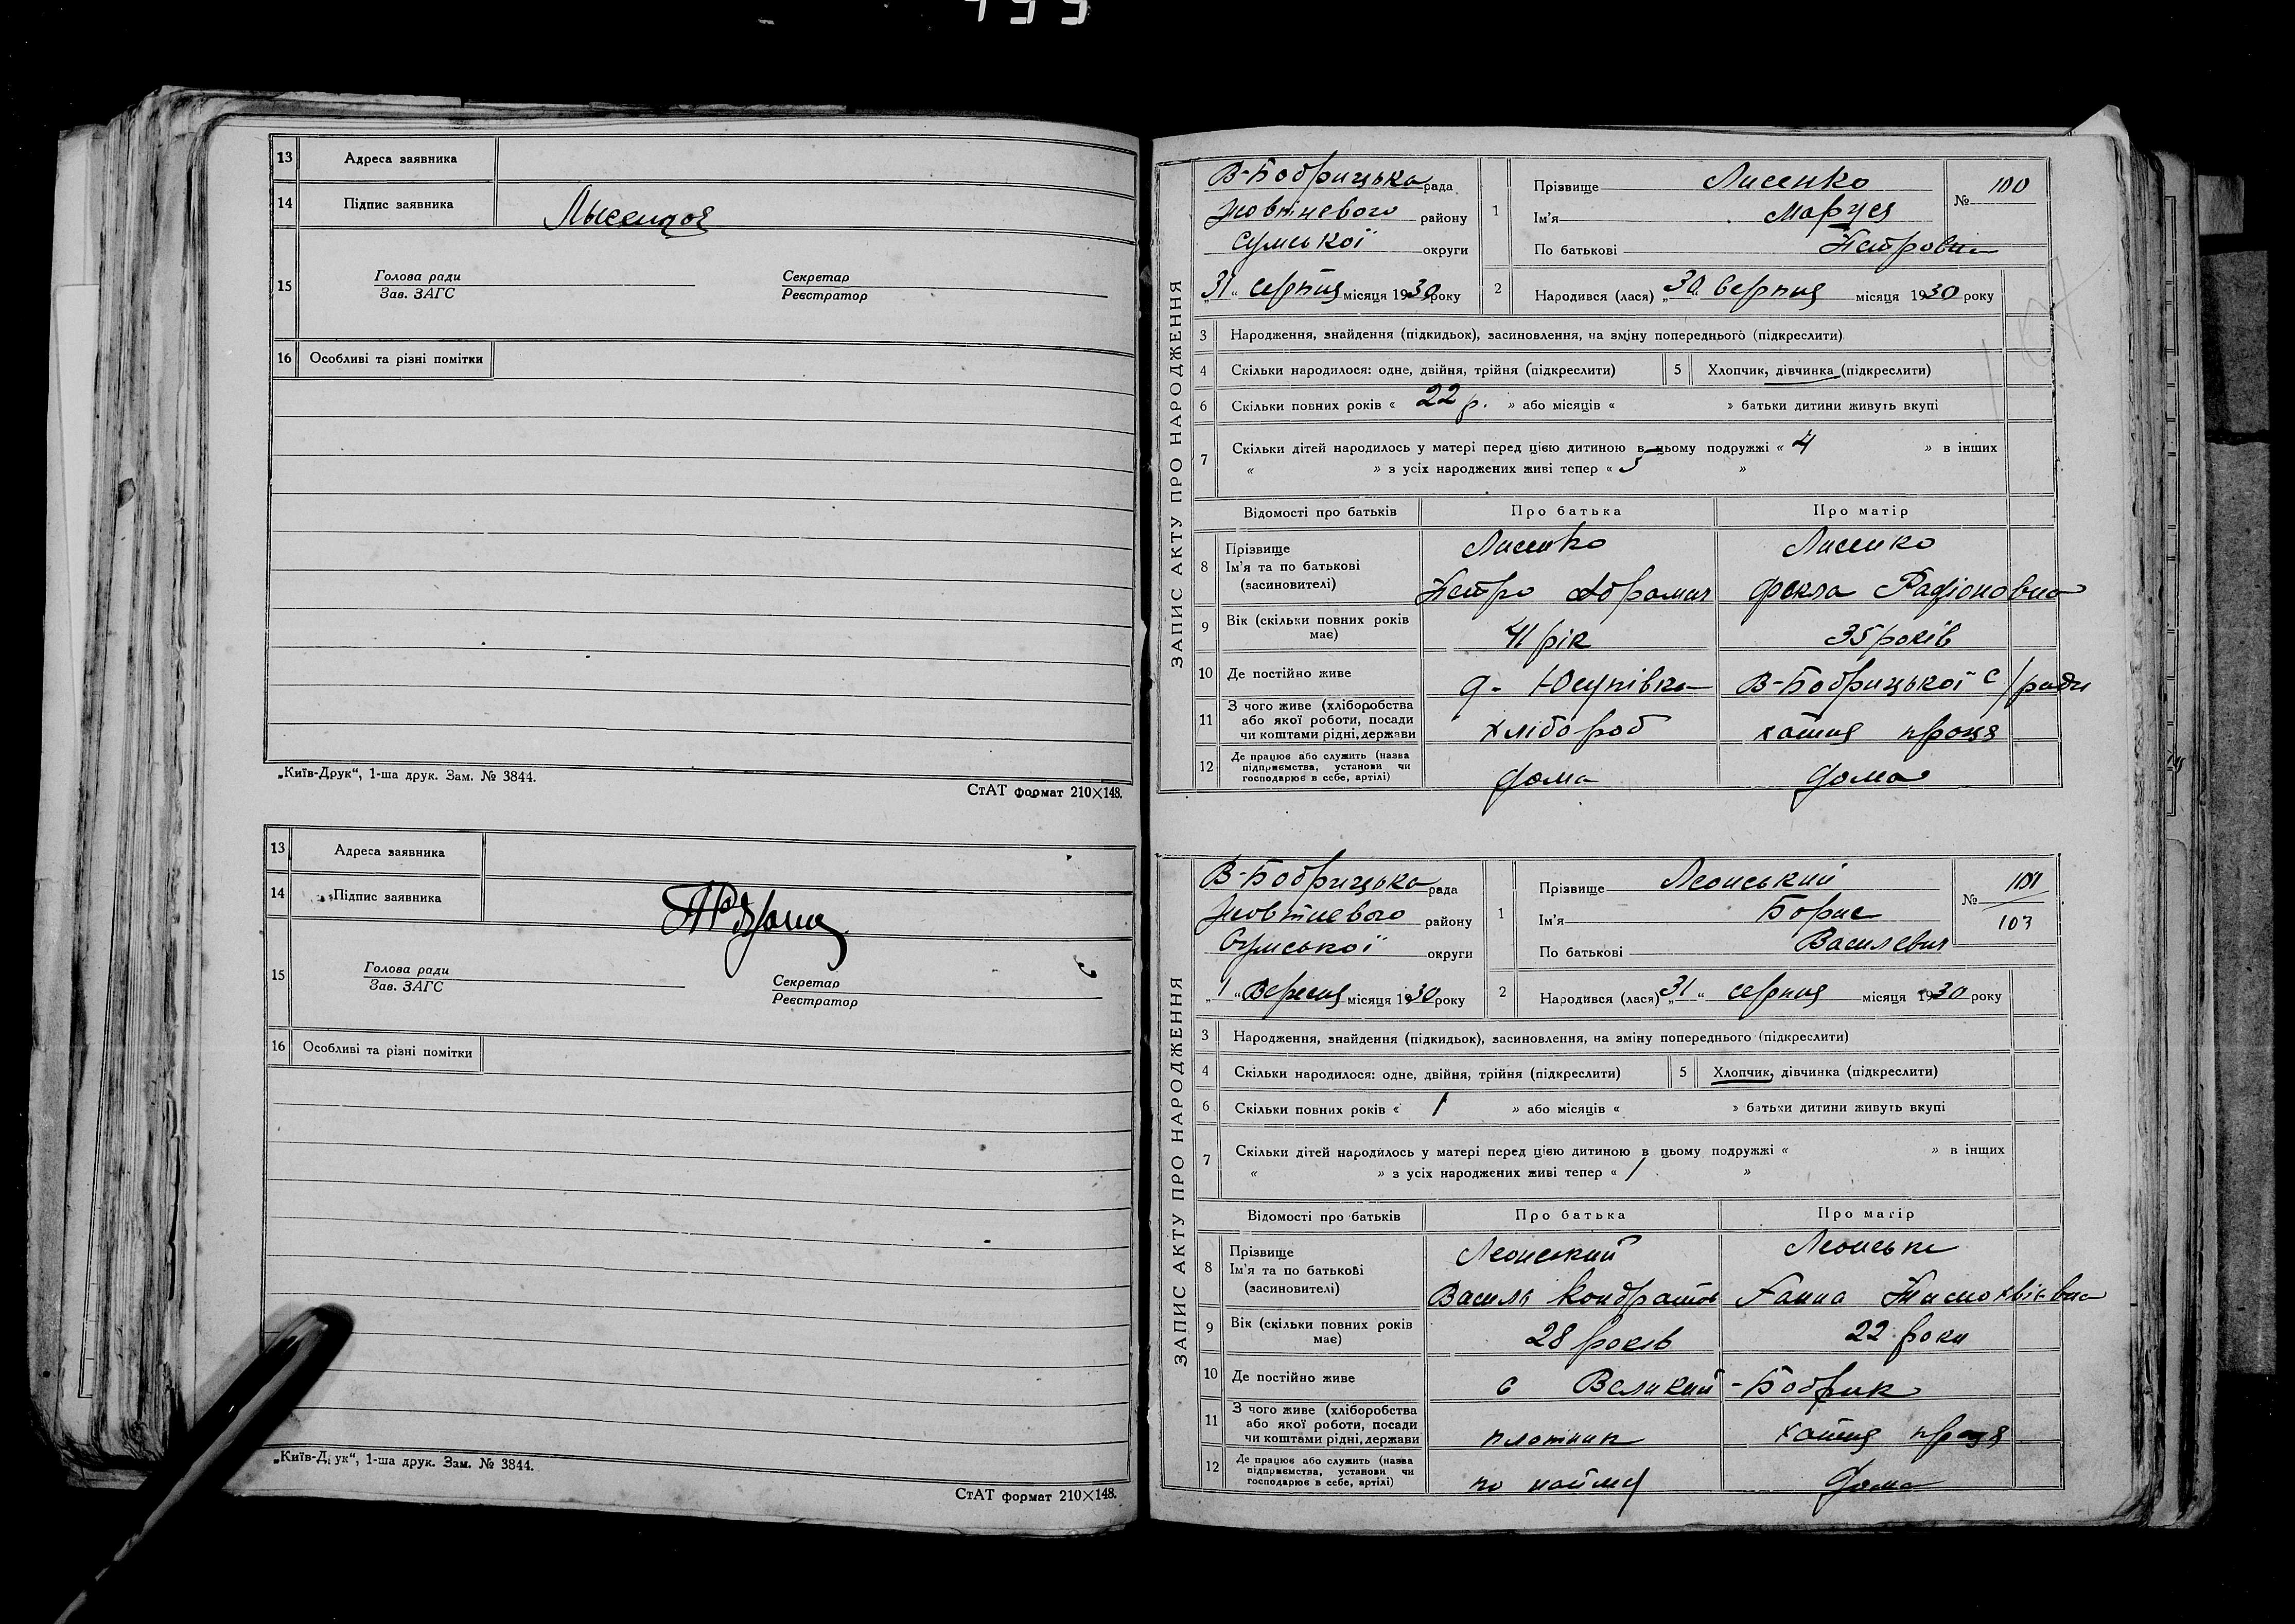 13 Адреса заявника
14 Підпис заявника
15 Голова ради Секретар
Зав. ЗАГС Реєстратор
16 Особливі та різні помітки
„Київ-Друк“, 1-ша друк. Зам. № 3844.
СтАТ формат 210×148.
13 Адреса заявника
14 Підпис заявника
15 Голова ради Секретар
Зав. ЗАГС Реєстратор
16 Особливі та різні помітки
„Київ-Друк“, 1-ша друк. Зам. № 3844.
СтАТ формат 210×148.
ЗАПИС АКТУ ПРО НАРОДЖЕННЯ
В-Бобрицька рада
Жовтневого району
Сумської округи
„31“ серпня місяця 1930 року
1 Прізвище Лисенко
Ім'я Маруся
По батькові Петровна
№ 100
2 Народився (лася) „30“ Серпня місяця 1930 року
3 Народження, знайдення (підкидьок), засиновлення, на зміну попереднього (підкреслити)
4 Скільки народилося: одне, двійня, трійня (підкреслити) 5 Хлопчик, дівчинка (підкреслити)
6 Скільки повних років « 22 р. » або місяців « » батьки дитини живуть вкупі
7 Скільки дітей народилось у матері перед цією дитиною в цьому подружжі « 4 » в інших
« » з усіх народжених живі тепер « 5 »
Відомості про батьків Про батька Про матір
8 Прізвище Лисенко Лисенко
Ім'я та по батькові
(засиновителі) Петро Абрамич Фекла Радіоновна
9 Вік (скільки повних років має) 41 рік 35 років
10 Де постійно живе д. Юсупівка В-Бобрицької с/ради
11 З чого живе (хліборобства
або якої роботи, посади
чи коштами рідні, держави хлібороб хатня праця
12 Де працює або служить (назва
підприємства, установи чи
господарює в себе, артілі) дома дома
ЗАПИС АКТУ ПРО НАРОДЖЕННЯ
В-Бобрицька рада
Жовтневого району
Сумської округи
„1“ Вересня місяця 1930 року
1 Прізвище Леонський
Ім'я Борис
По батькові Василевич
№ 101
103
2 Народився (лася) „31“ серпня місяця 1930 року
3 Народження, знайдення (підкидьок), засиновлення, на зміну попереднього (підкреслити)
4 Скільки народилося: одне, двійня, трійня (підкреслити) 5 Хлопчик, дівчинка (підкреслити)
6 Скільки повних років « 1 » або місяців « » батьки дитини живуть вкупі
7 Скільки дітей народилось у матері перед цією дитиною в цьому подружжі « » в інших
« » з усіх народжених живі тепер « 1 »
Відомості про батьків Про батька Про матір
8 Прізвище Леонський Леонська
Ім'я та по батькові
(засиновителі) Василь Кондратов Ганна
9 Вік (скільки повних років має) 28 років 22 роки
10 Де постійно живе с Великий-Бобрик
11 З чого живе (хліборобства
або якої роботи, посади
чи коштами рідні, держави плотник хатня праця
12 Де працює або служить (назва
підприємства, установи чи
господарює в себе, артілі) по найму Дома